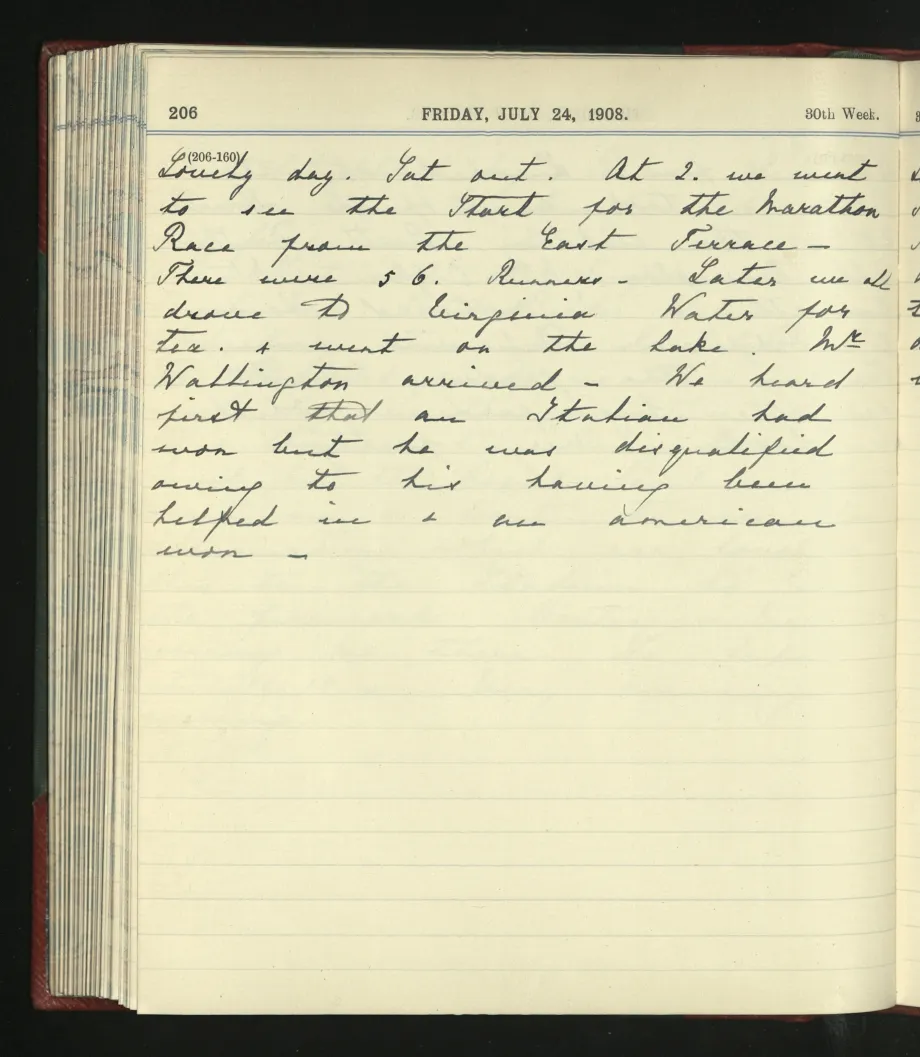 206 FRIDAY, JULY 24, 1908. 30th Week.
(206-160)
Lovely day. Sat out. At 2. we went
to see the Start for the Marathon
Race from the East Terrace –
There were 56. Runners – Later we all
drove to Virginia Water for
tea. & went on the lake. Mr
Wallington arrived – We heard
first that an Italian had
won but he was disqualified
owing to his having been
helped in & an american
won –